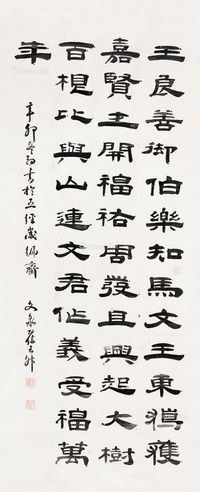 王良善御伯樂知馬文王東獵獲
嘉賢士開福祐周發且興起大樹
百根比與山連文君作義受福萬
年
辛卯冬初書於五經歲徧齋
文泉翟云升